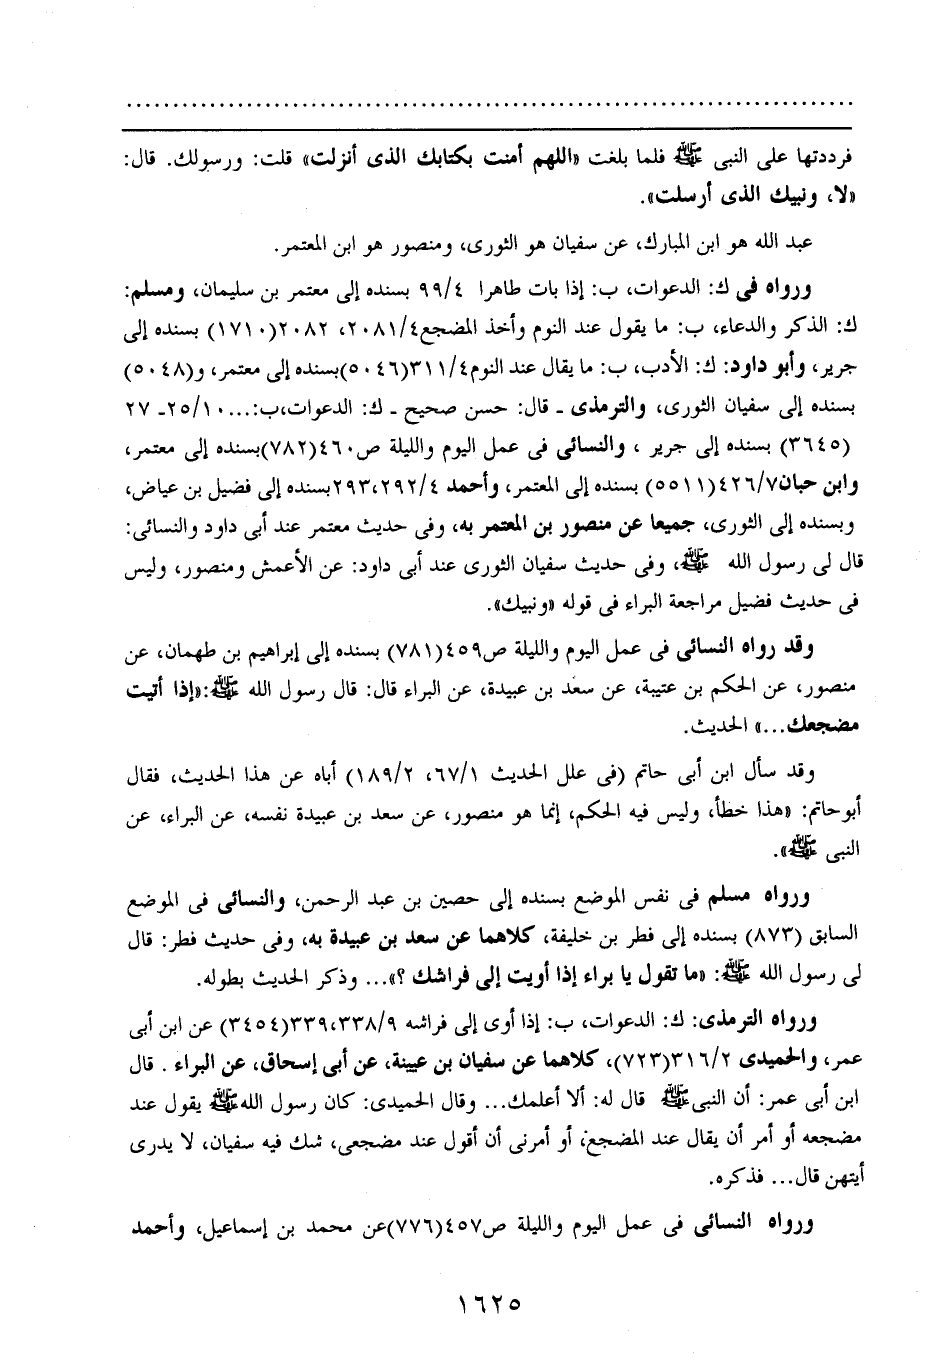 فرددتها على النبى ﷺ فلما بلغت «اللهم أمنت بكتابك الذى أنزلت» قلت: ورسولك. قال:
«لا، ونبيك الذى أرسلت».
عبد الله هو ابن المبارك، عن سفيان هو الثورى، ومنصور هو ابن المعتمر.
ورواه فى ك: الدعوات، ب: إذا بات طاهرا ٩٩/٤ بسنده إلى معتمر بن سليمان، ومسلم:
ك: الذكر والدعاء، ب: ما يقول عند النوم وأخذ المضجع٢٠٨١/٤، ٢٠٨٢(١٧١٠) بسنده إلى
جرير، وأبو داود: ك: الأدب، ب: ما يقال عند النوم٣١١/٤(٥٠٤٦)بسنده إلى معتمر، و(٥٠٤٨)
بسنده إلى سفيان الثورى، والترمذى ـ قال: حسن صحيح ـ ك: الدعوات،ب:...٢٥/١٠ـ ٢٧
(٣٦٤٥) بسنده إلى جرير ، والنسائى فى عمل اليوم والليلة ص٤٦٠(٧٨٢)بسنده إلى معتمر،
وابن حبان٤٢٦/٧(٥٥١١) بسنده إلى المعتمر، وأحمد ٢٩٢/٤،٢٩٣بسنده إلى فضيل بن عياض،
وبسنده إلى الثورى، جميعا عن منصور بن المعتمر به، وفى حديث معتمر عند أبى داود والنسائى:
قال لى رسول الله ﷺ، وفى حديث سفيان الثورى عند أبى داود: عن الأعمش ومنصور، وليس
فى حديث فضيل مراجعة البراء فى قوله «ونبيك».
وقد رواه النسائى فى عمل اليوم والليلة ص٤٥٩(٧٨١) بسنده إلى إبراهيم بن طهمان، عن
منصور، عن الحكم بن عتيبة، عن سعد بن عبيدة، عن البراء قال: قال رسول الله ﷺ:«إذا أتيت
مضجعك...» الحديث.
وقد سأل ابن أبى حاتم (فى علل الحديث ٦٧/١، ١٨٩/٢) أباه عن هذا الحديث، فقال
أبوحاتم: «هذا خطأ، وليس فيه الحكم، إنما هو منصور، عن سعد بن عبيدة نفسه، عن البراء، عن
النبى ﷺ».
ورواه مسلم فى نفس الموضع بسنده إلى حصين بن عبد الرحمن، والنسائى فى الموضع
السابق (٨٧٣) بسنده إلى فطر بن خليفة، كلاهما عن سعد بن عبيدة به، وفى حديث فطر: قال
لى رسول الله ﷺ: «ما تقول يا براء إذا أويت إلى فراشك ؟»... وذكر الحديث بطوله.
ورواه الترمذى: ك: الدعوات، ب: إذا أوى إلى فراشه ٣٣٨/٩،٣٣٩(٣٤٥٤) عن ابن أبى
عمر، والحميدى ٣١٦/٢(٧٢٣)، كلاهما عن سفيان بن عيينة، عن أبى إسحاق، عن البراء . قال
ابن أبى عمر: أن النبى ﷺ قال له: ألا أعلمك... وقال الحميدى: كان رسول الله ﷺ يقول عند
مضجعه أو أمر أن يقال عند المضجع، أو أمرنى أن أقول عند مضجعى، شك فيه سفيان، لا يدرى
أيتهن قال... فذكره.
ورواه النسائى فى عمل اليوم والليلة ص٤٥٧(٧٧٦)عن محمد بن إسماعيل، وأحمد
١٦٢٥